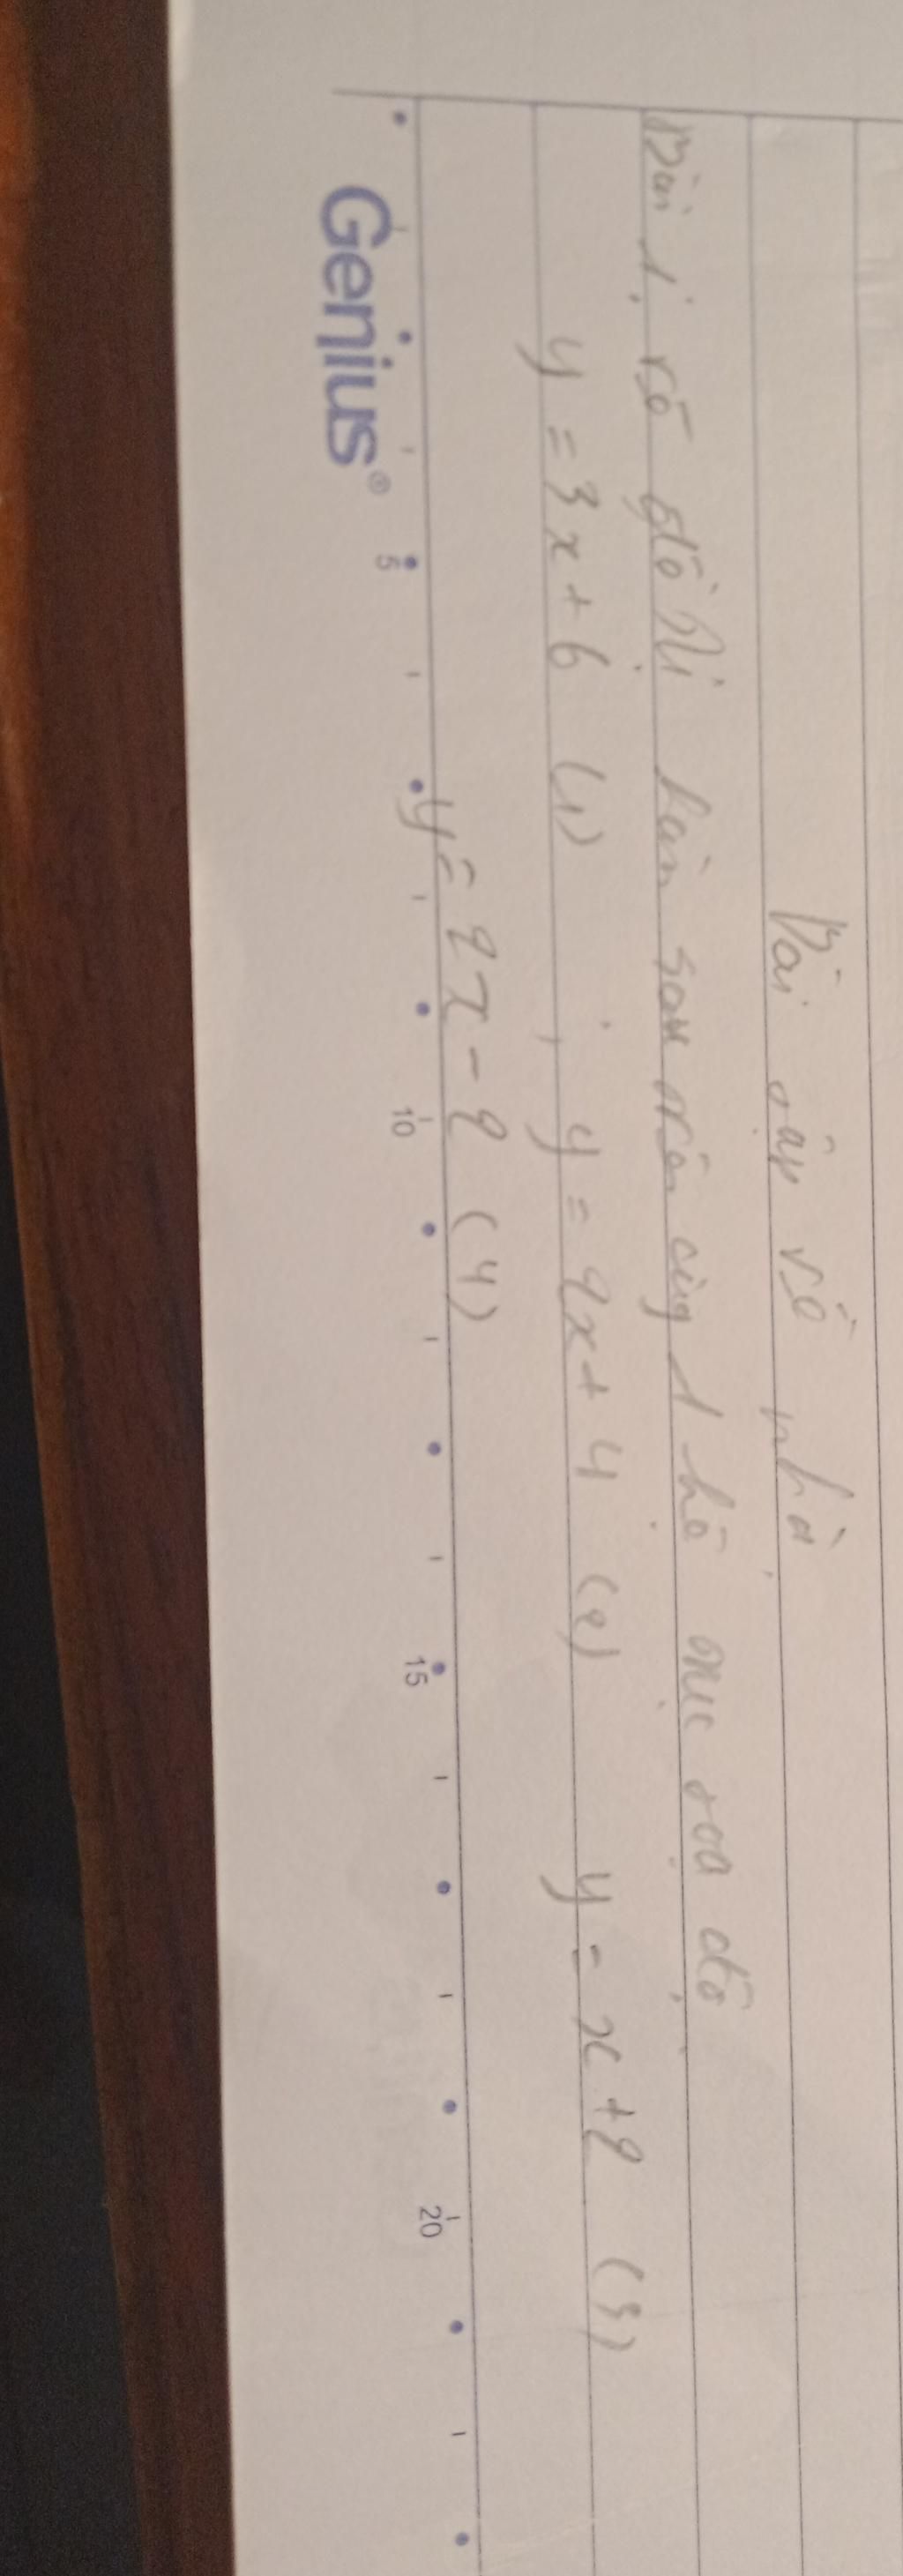 Bài tập về nhà
Bài 1: vẽ đồ thị hàm sau trên cùng 1 hệ trục toạ độ
y = 3x + 6 (1) ; y = 2x + 4 (2) y = x + 2 (3)
y = 2x - 2 (4)
Genius® 5 10 15 20